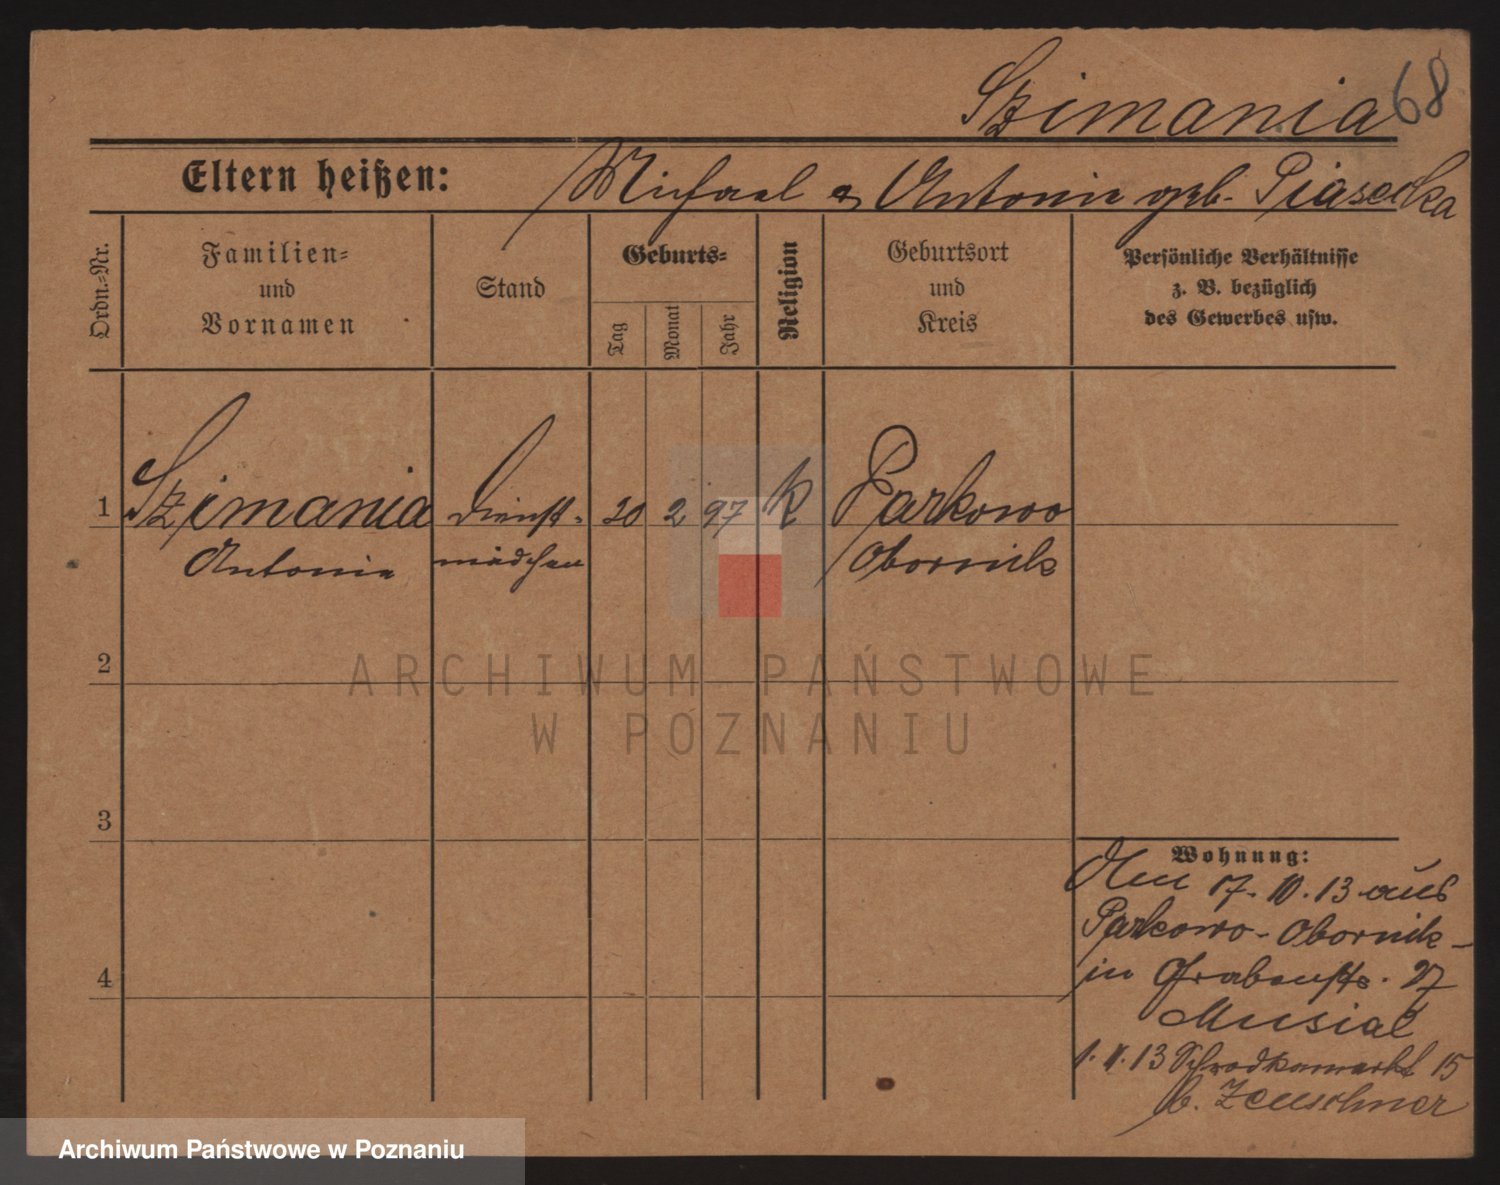 Szimania 68
Eltern heißen: Michael & Antonie geb. Piasecka
Ordn.=Nr.
Familien=
und
Vornamen
Stand
Geburts=
Tag
Monat
Jahr
Religion
Geburtsort
und
Kreis
Persönliche Verhältnisse
z. B. bezüglich
des Gewerbes usw.
1 Szimania Dienst= 20 2 97 K Parkowo
Antonie mädchen Obornik
2
ARCHIWUM PAŃSTWOWE
W POZNANIU
3
Wohnung:
Den 17. 10. 13 aus
Parkowo - Obornik -
in Grabenstr. 27
Musial
1. 11. 13 Schrodkamarkt 15
b. Zeuschner
4
Archiwum Państwowe w Poznaniu